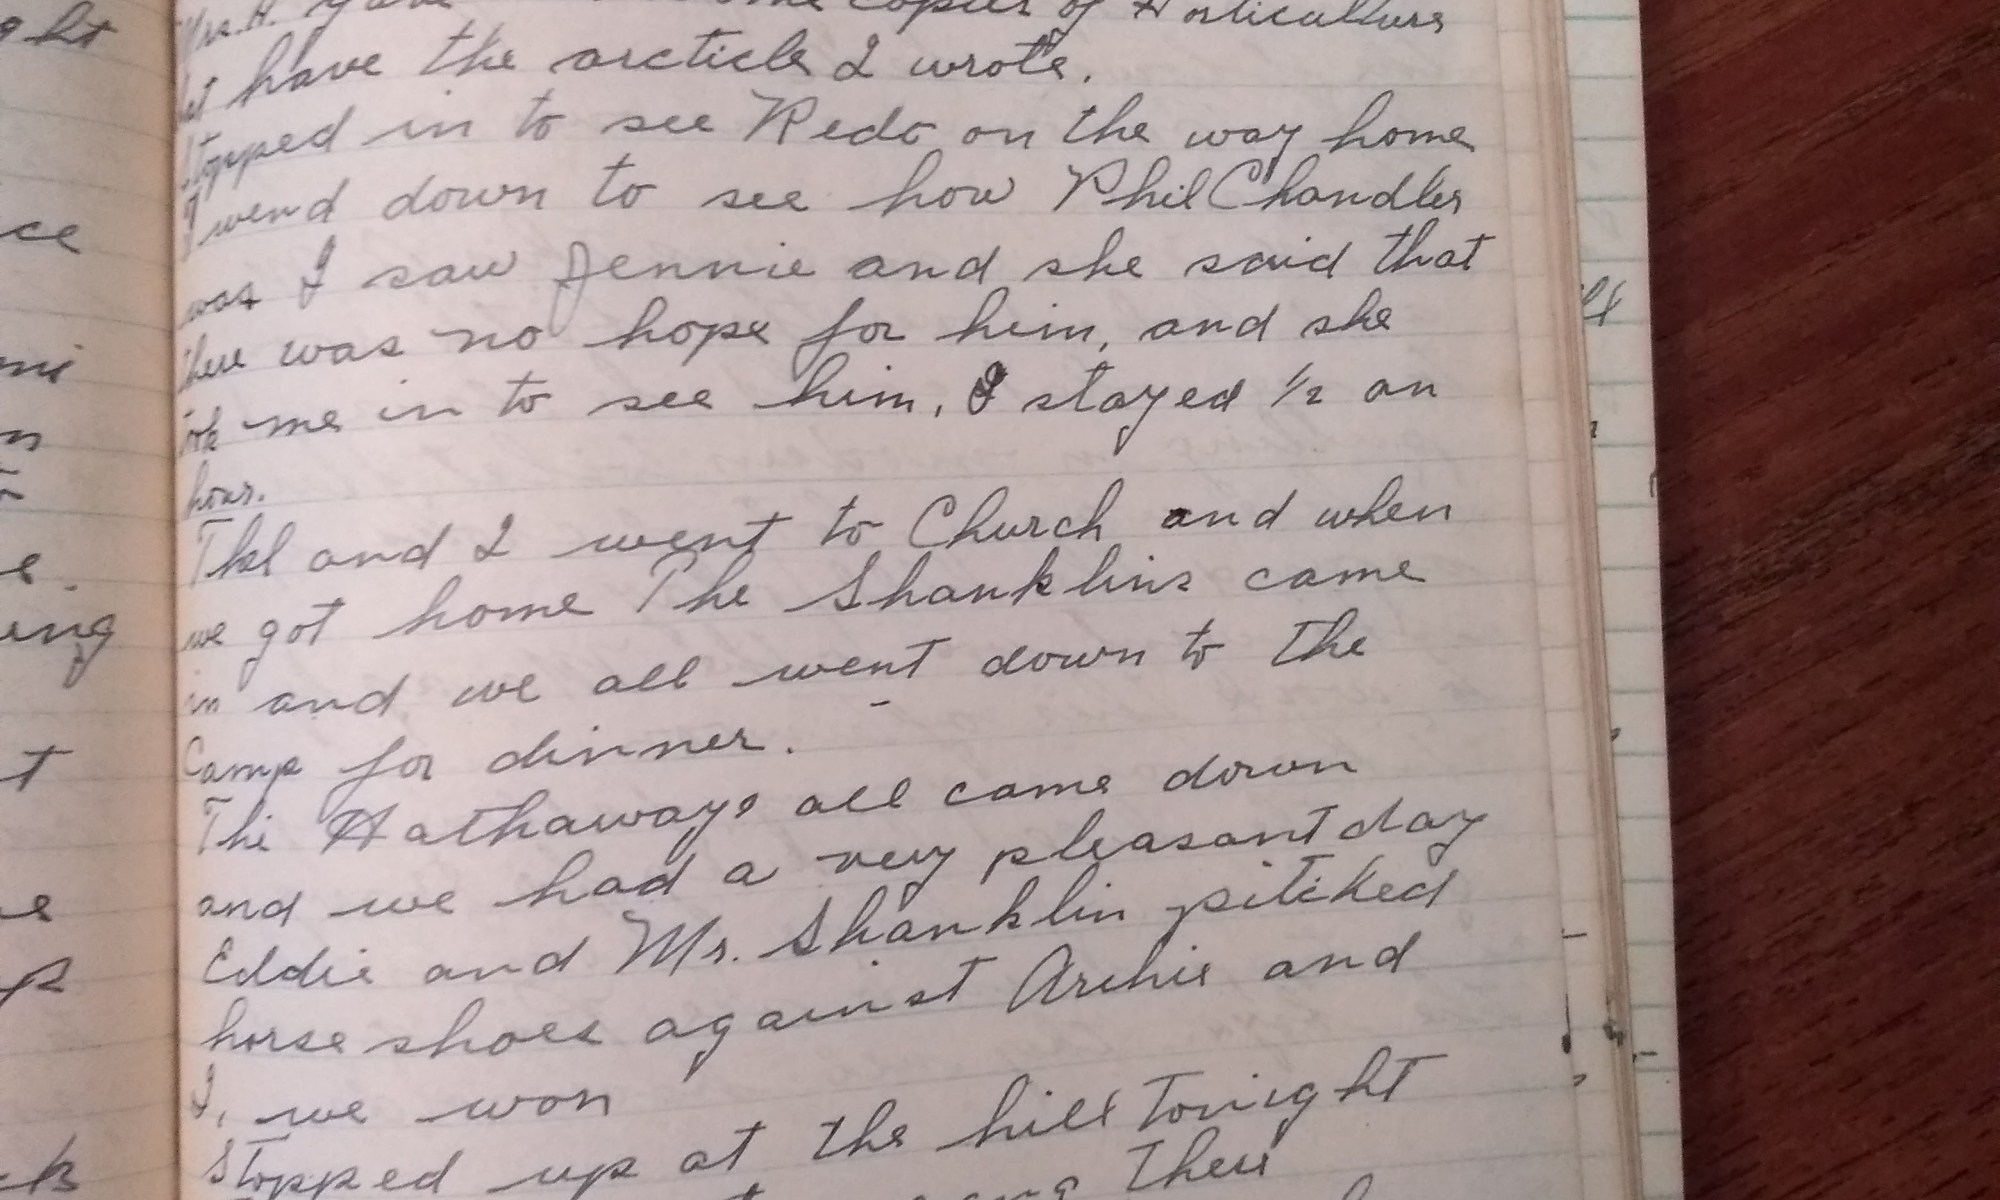 Mrs. H. gave some copies of Horticulture
have the arcticle I wrote.
Stopped in to see Redo on the way home
I wend down to see how Phil Chandler
was I saw Jennie and she said that
there was no hope for him, and she
took me in to see him, I stayed 1/2 an
hour.
Thl and I went to Church and when
we got home The Shanklins came
in and we all went down to the
Camp for dinner.
The Hathaways all came down
and we had a very pleasant day
Eddie and Mr. Shanklin pitched
horse shoes against Archie and
I, we won
Stopped up at the hill Tonight
There